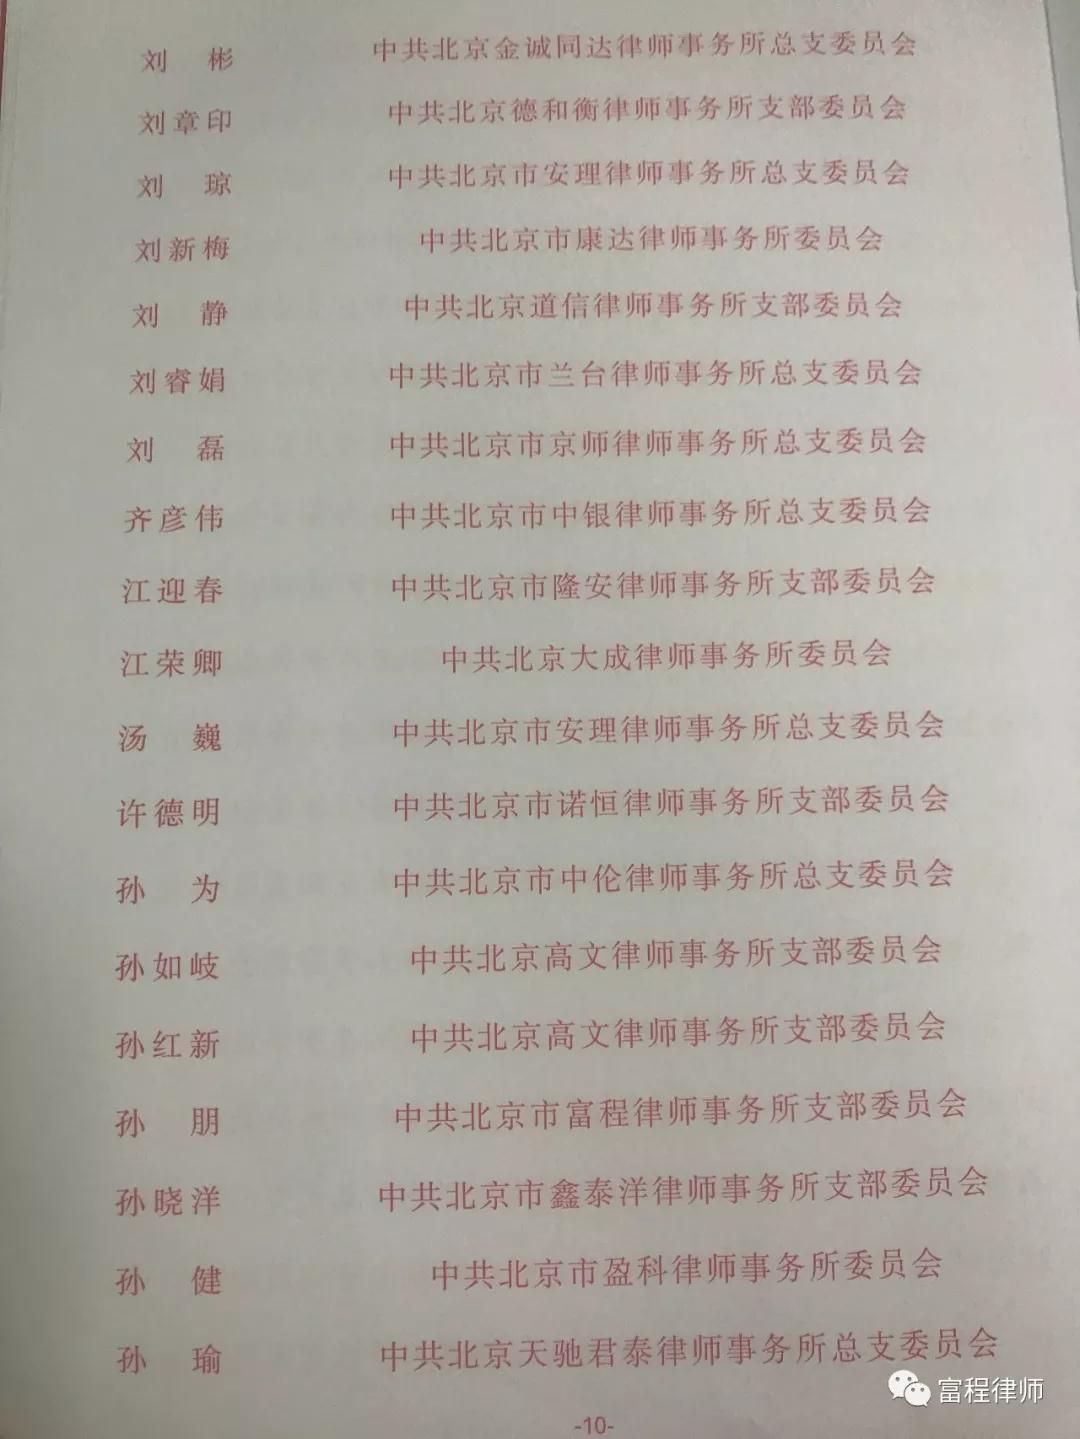 刘 彬 中共北京金诚同达律师事务所总支委员会
刘章印 中共北京德和衡律师事务所支部委员会
刘 琼 中共北京市安理律师事务所总支委员会
刘新梅 中共北京市康达律师事务所委员会
刘 静 中共北京道信律师事务所支部委员会
刘睿娟 中共北京市兰台律师事务所总支委员会
刘 磊 中共北京市京师律师事务所总支委员会
齐彦伟 中共北京市中银律师事务所总支委员会
江迎春 中共北京市隆安律师事务所支部委员会
江荣卿 中共北京大成律师事务所委员会
汤 巍 中共北京市安理律师事务所总支委员会
许德明 中共北京市诺恒律师事务所支部委员会
孙 为 中共北京市中伦律师事务所总支委员会
孙如岐 中共北京高文律师事务所支部委员会
孙红新 中共北京高文律师事务所支部委员会
孙 朋 中共北京市富程律师事务所支部委员会
孙晓洋 中共北京市鑫泰洋律师事务所支部委员会
孙 健 中共北京市盈科律师事务所委员会
孙 瑜 中共北京天驰君泰律师事务所总支委员会
富程律师
-10-